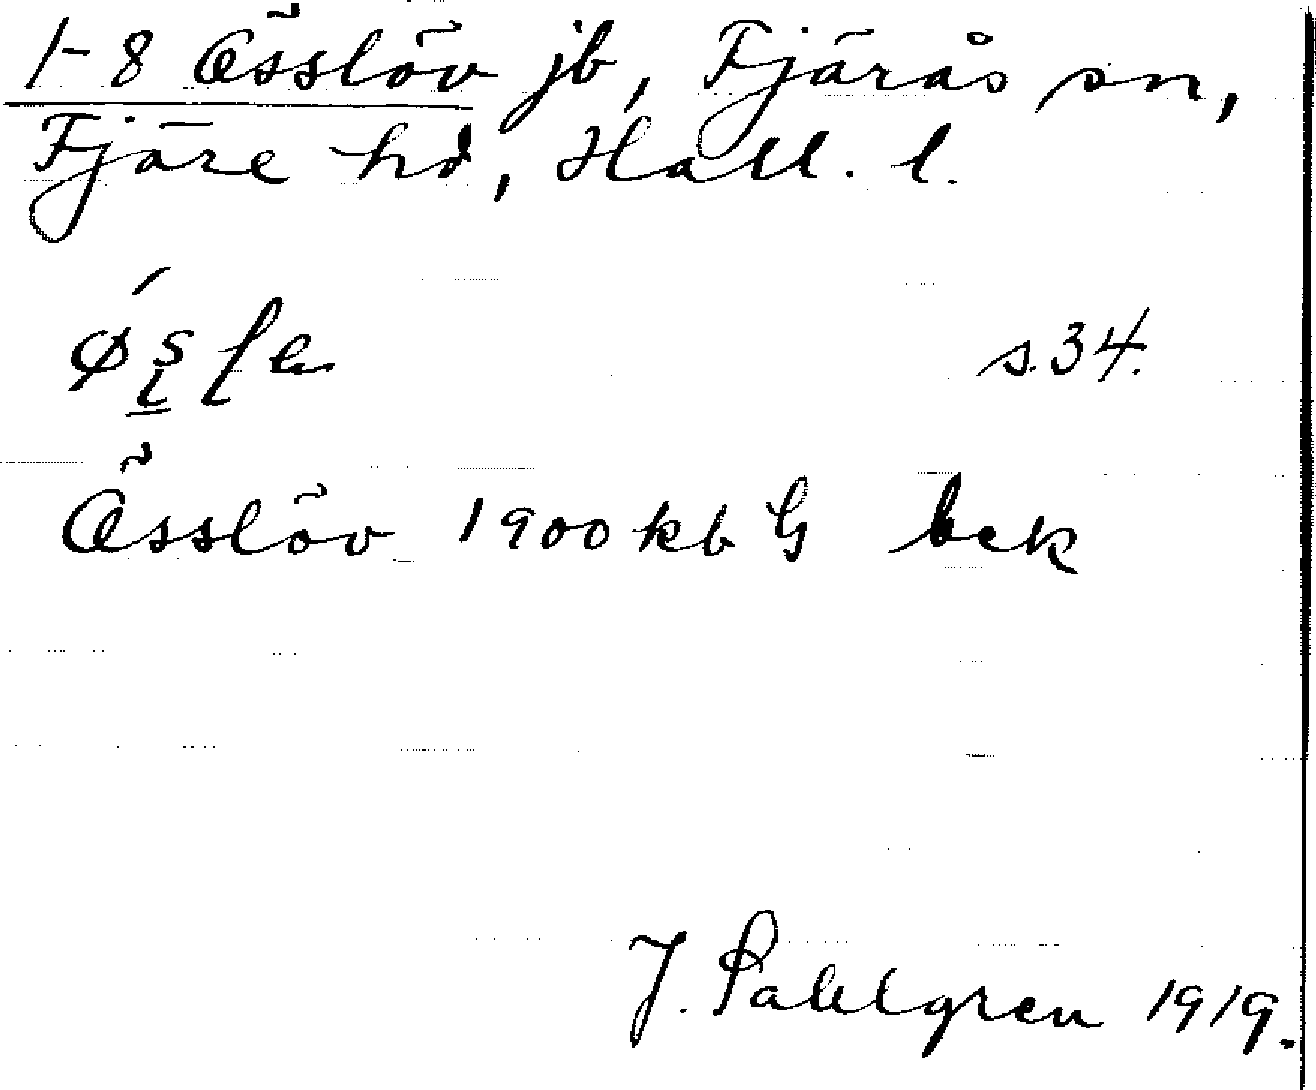 1-8 Össlöv jb, Fjärås sn,
Fjäre hd, Hall. l.
s. 34.
Össlöv 1900 kb G bek
J. Sahlgren 1919.